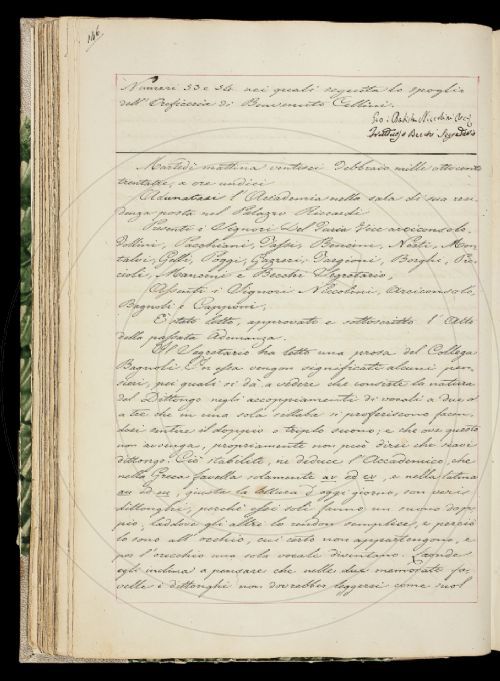 146
Numeri 53 e 54 nei quali seguita lo spoglio
dell'Oreficeria di Benvenuto Cellini.
Gio: Batista Niccolini Arcic.
Fruttuoso Becchi Segretario
Martedì mattina ventisei Febbraio mille ottocento
trentatre, a ore undici
Adunatasi l'Accademia nella sala di sua resi-
denza posta nel Palazzo Riccardi
Presenti i Signori Del Furia Vice arciconsolo,
Follini, Pacchiani, Tassi, Bencini, Nesti, Mon-
talvi, Gelli, Poggi, Gazzeri, Targioni, Borghi, Pre-
cioli, Manzini e Becchi Segretario,
Assenti i Signori Niccolini, Arciconsolo,
Bagnoli e Capponi,
È stato letto, approvato e sottoscritto l'Atto
della passata Adunanza.
Il Segretario ha letto una prosa del Collega
Bagnoli. In essa vengon significati alcuni pen-
sieri, pei quali si dà a vedere che consiste la natura
del Dittongo negli accoppiamenti di vocali a due o
a tre che in una sola sillaba si profferiscono facen-
dosi sentire il doppio o triplo suono; e che ove questo
non avvenga, propriamente non può dirsi che siavi
dittongo. Ciò stabilito, ne deduce l'Accademico, che
nella Greca favella solamente av ed ev, e nella latina
au ed eu, giusta la lettura d'oggi giorno, son veri
dittonghi, perchè essi soli fanno un suono dop-
pio, laddove gli altri lo rendon semplice, e perciò
lo sono all'occhio, cui certo non appartengono, e
per l'orecchio una sola vocale diventano. Laonde
egli inclina a pensare che nelle due memorate fa-
velle i dittonghi non dovrebber leggersi come suol